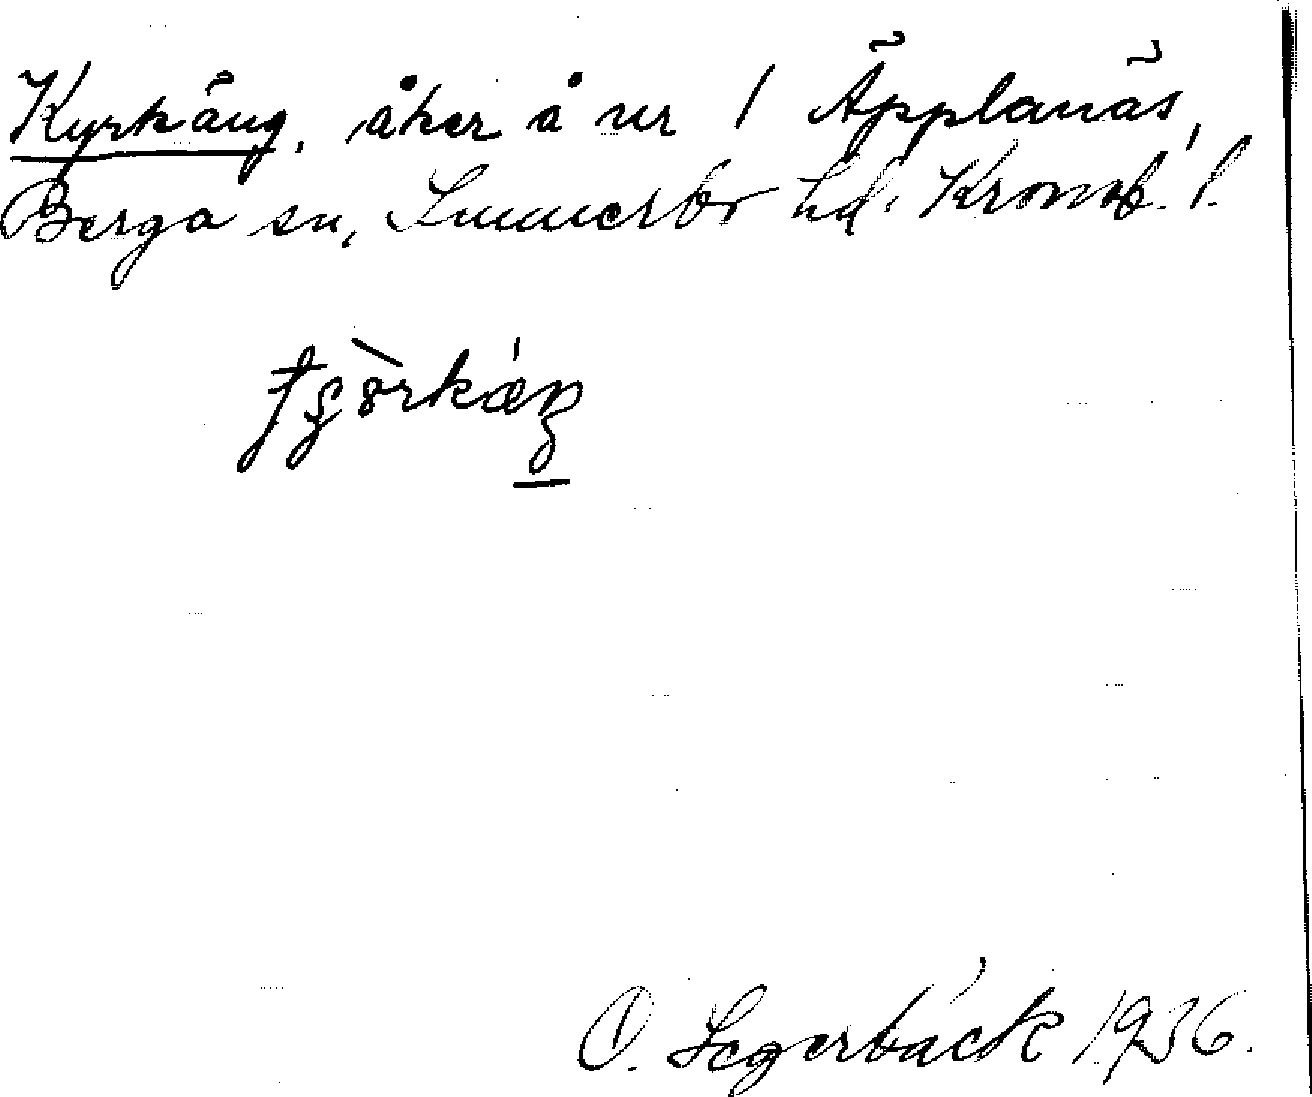 Kyrkäng, åker å nr 1 Äpplanäs,
Berga sn, Sunnerbo hd. Kronob. l.
O. Segerbäck 1936.